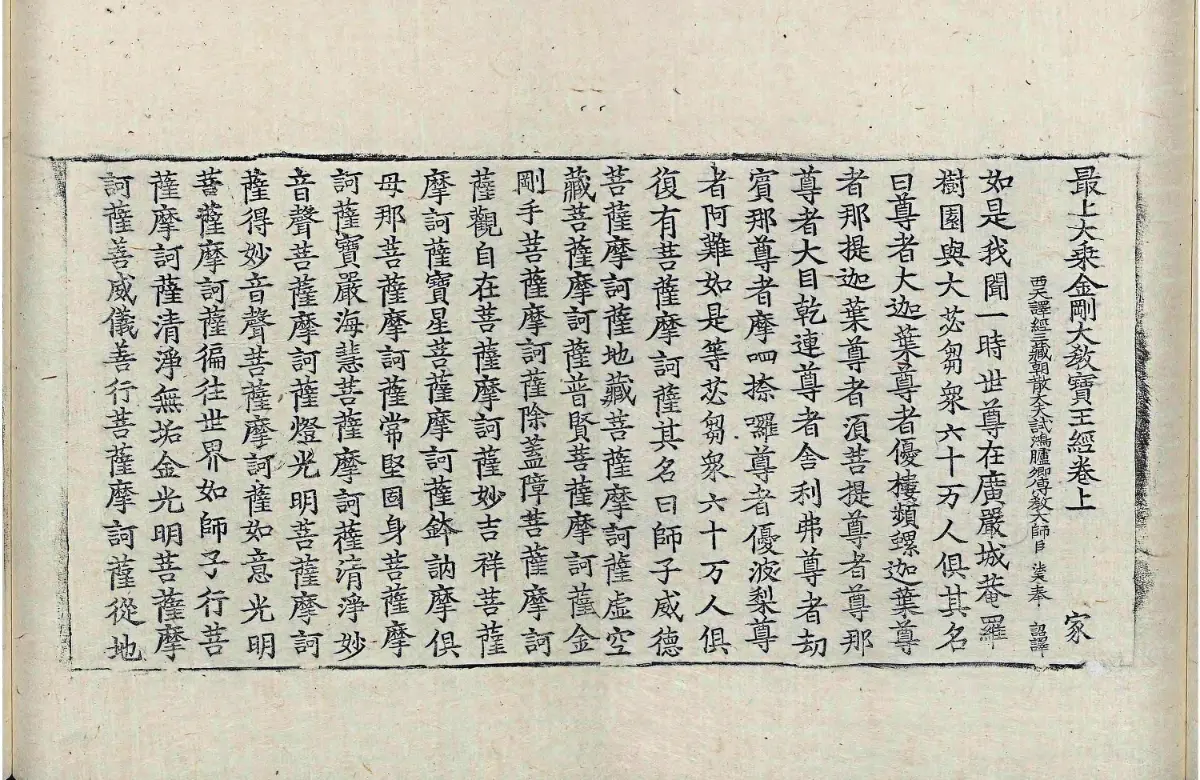 最上大乘金剛大教寶王經卷上 家
西天譯經三藏朝散大夫試鴻臚卿傳教大師臣法天奉 詔譯
如是我聞一時世尊在廣嚴城菴羅
樹園與大苾芻衆六十万人俱其名
曰尊者大迦葉尊者優樓頻螺迦葉尊
者那提迦葉尊者湏菩提尊者尊那
尊者大目乾連尊者舍利弗尊者劫
賓那尊者摩呬捺囉尊者優波梨尊
者阿難如是等苾芻衆六十万人俱
復有菩薩摩訶薩其名曰師子威德
菩薩摩訶薩地藏菩薩摩訶薩虛空
藏菩薩摩訶薩普賢菩薩摩訶薩金
剛手菩薩摩訶薩除蓋障菩薩摩訶
薩觀自在菩薩摩訶薩妙吉祥菩薩
摩訶薩寶星菩薩摩訶薩鉢訥摩俱
母那菩薩摩訶薩常堅固身菩薩摩
訶薩寶嚴海慧菩薩摩訶薩清淨妙
音聲菩薩摩訶薩燈光明菩薩摩訶
薩得妙音聲菩薩摩訶薩如意光明
菩薩摩訶薩徧往世界如師子行菩
薩摩訶薩清淨無垢金光明菩薩摩
訶薩善威儀善行菩薩摩訶薩從地